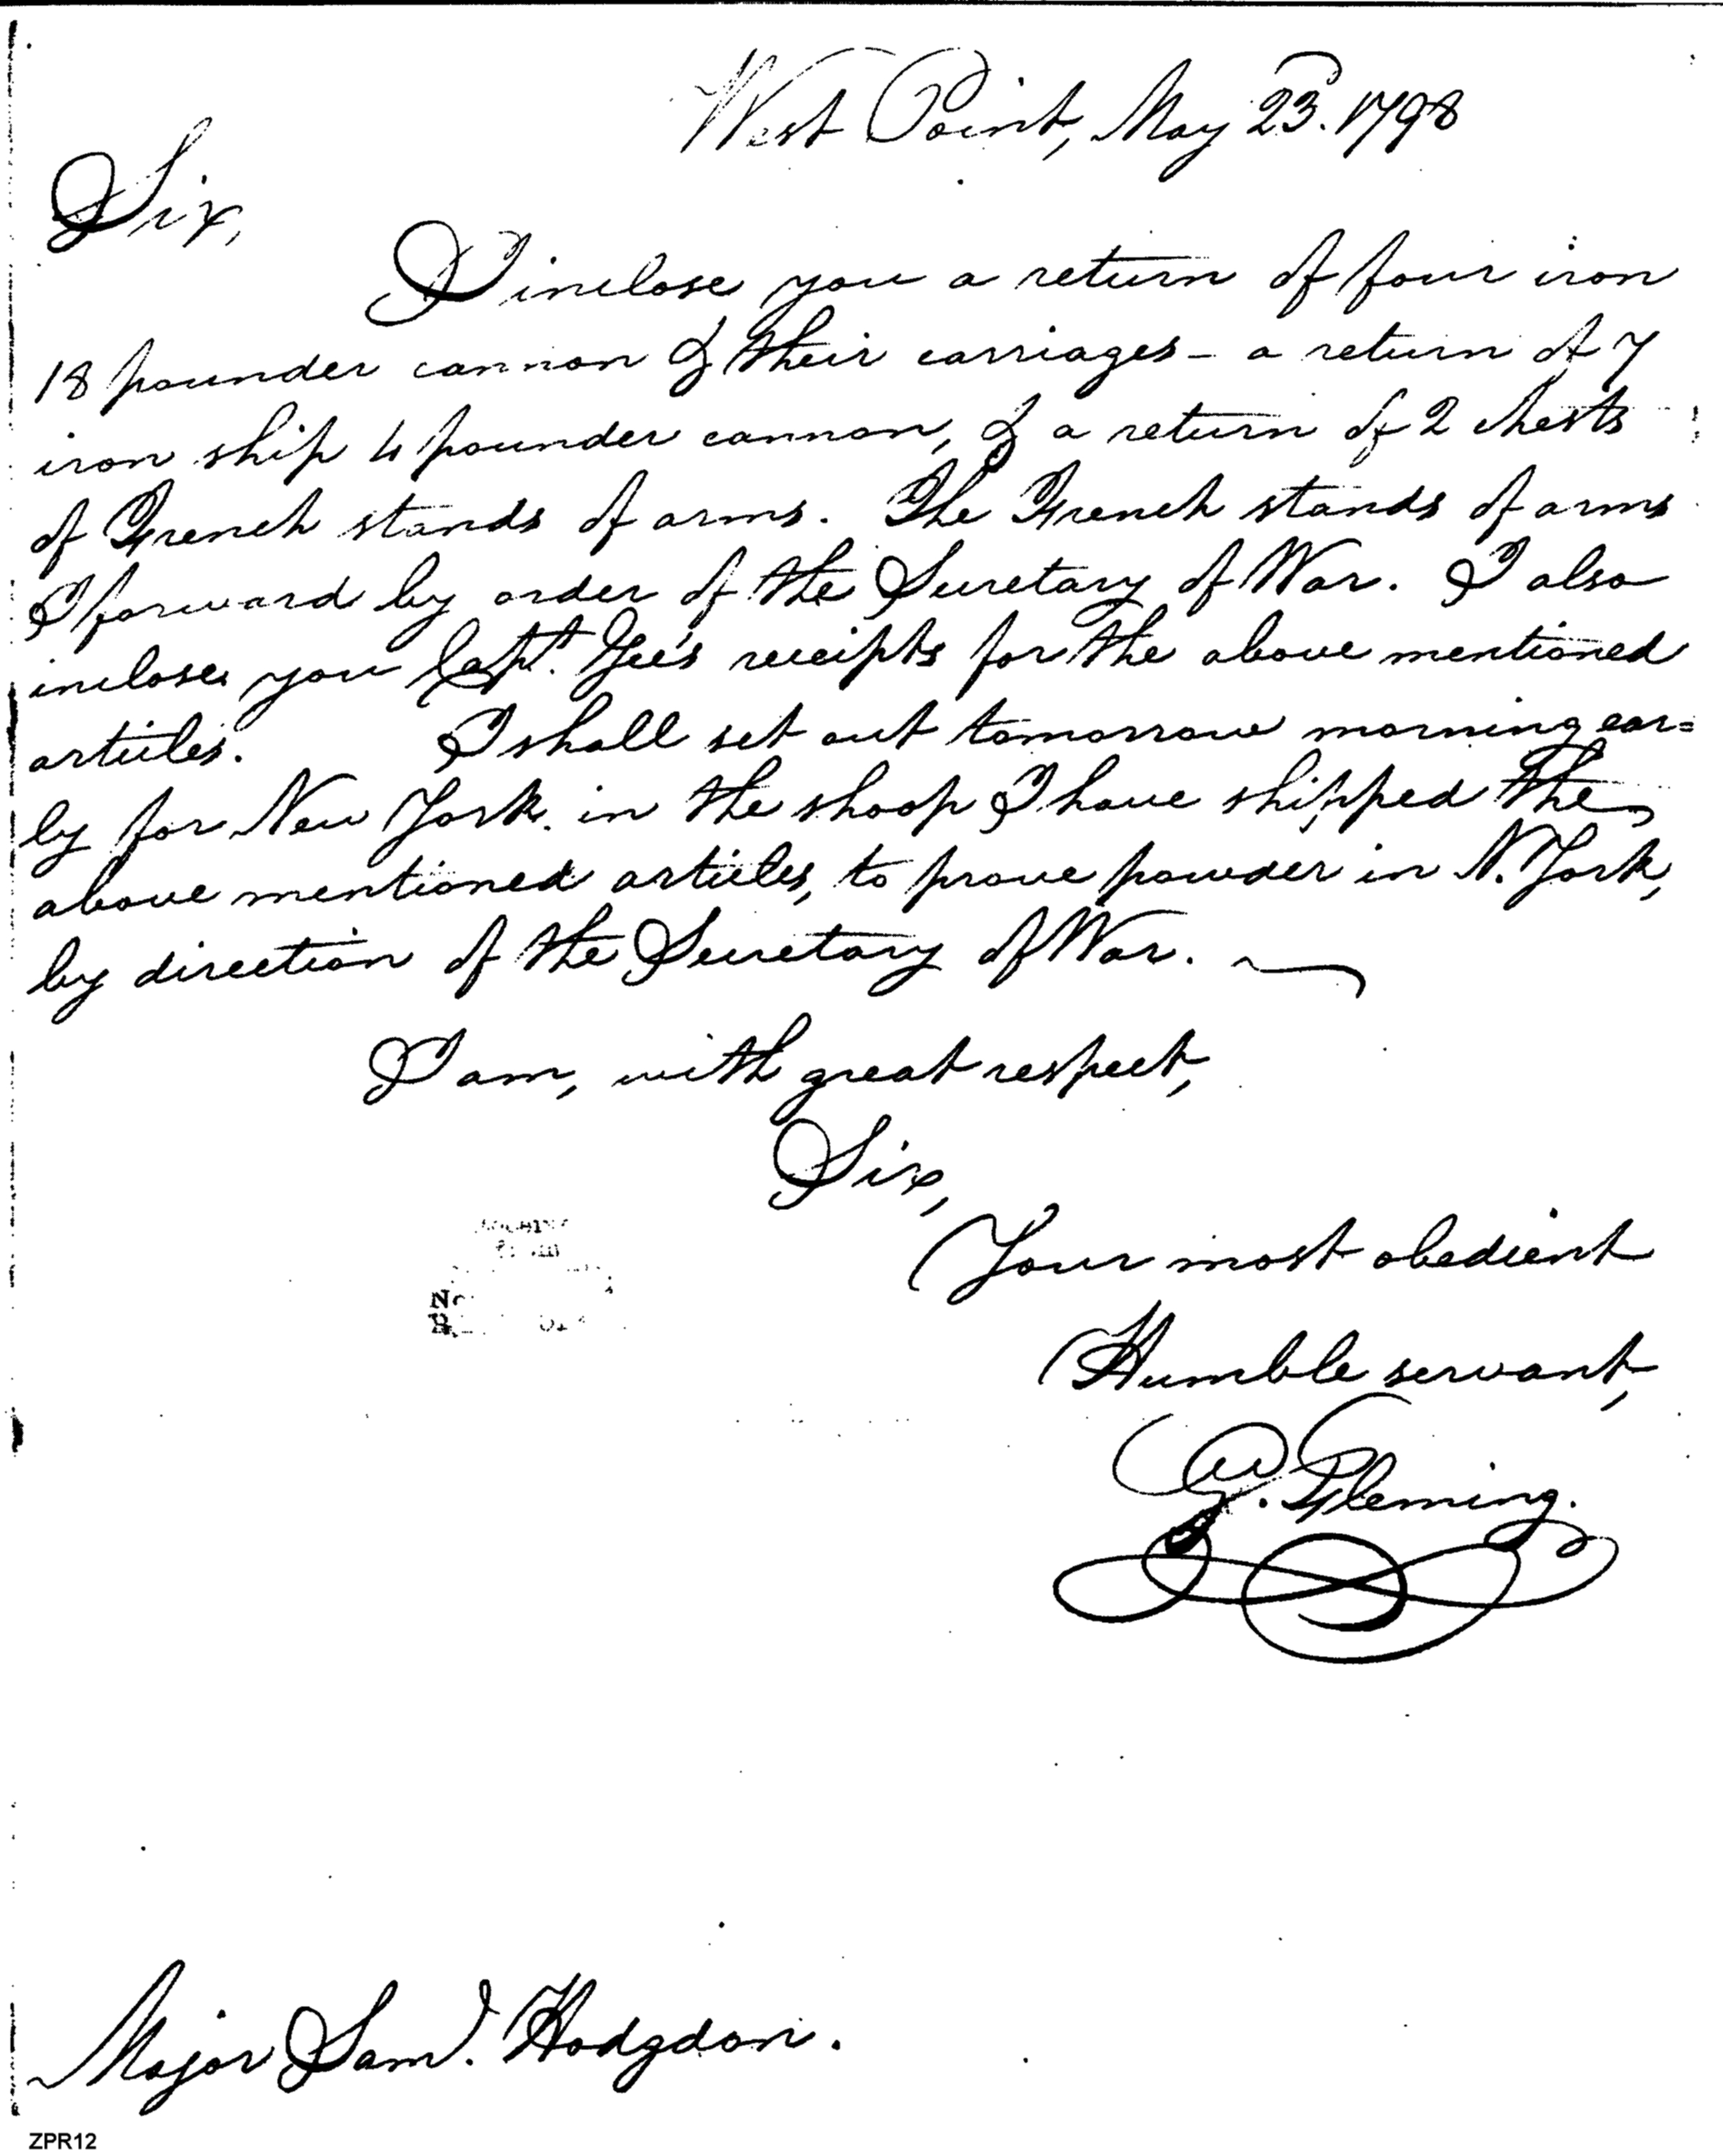 West Point, May 23. 1798
Sir,
I inclose you a return of four iron
18 pounder cannon & their carriages - a return of 7
iron ship 4 pounder cannon, & a return of 2 chests
of French stands of arms. The French stands of arms
I forward by order of the Secretary of War. I also
inclose you Capt. Gee's receipts for the above mentioned
articles. I shall set out tomorrow morning ear=
ly for New York in the shoop I have shipped the
above mentioned articles, to prove powder in N. York,
by direction of the Secretary of War.
I am, with great respect,
Sir,
Your most obedient
Humble servant,
G. Fleming.
Major Saml. Hodgdon.
ZPR12